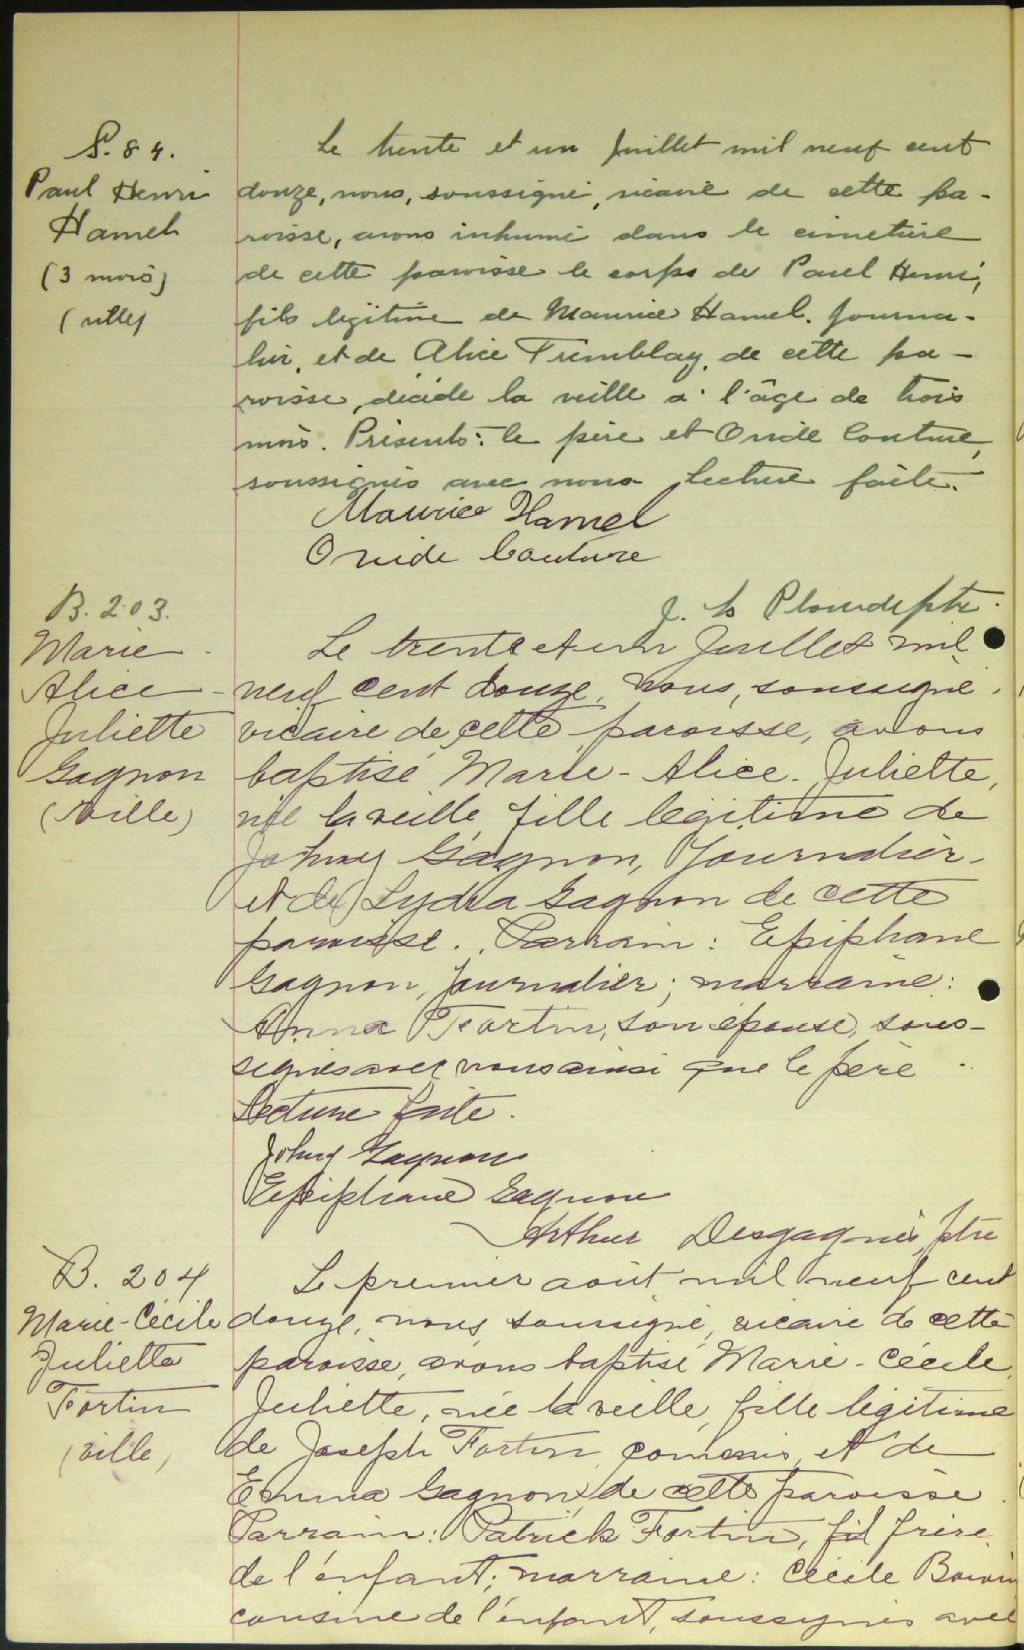 S. 84.
Paul Henri
Hamel
(3 mois)
(ville)
Le trente et un Juillet mil neuf cent
douze, nous, soussigné, vicaire de cette pa-
roisse, avons inhumé dans le cimetière
de cette paroisse le corps de Paul Henri,
fils légitime de Maurice Hamel, journa-
lier, et de Alice Tremblay, de cette pa-
roisse, décédé la veille à l'âge de trois
mois. Présents: le père et Ovide Couture,
soussignés avec nous. Lecture faite.
Maurice Hamel
Ovide Couture
Plourde ptre.
B. 203.
Marie
Alice
Juliette
Gagnon
(Ville)
Le trente et un Juillet mil
neuf cent douze, nous, soussigné,
vicaire de cette paroisse, avons
baptisé Marie-Alice-Juliette,
née la veille, fille légitime de
Johnny Gagnon, Journalier,
et de Lydia Gagnon de cette
paroisse. Parrain: Epiphane
Gagnon, journalier; marraine:
Anna Fortin, son épouse, sous-
signés avec nous ainsi que le père.
Lecture faite.
Johny Gagnon
Epiphane Gagnon
Arthur Desgagnés, ptre
B. 204
Marie-Cécile
Juliette
Fortin
(ville)
Le premier août mil neuf cent
douze, nous, soussigné, vicaire de cette
paroisse, avons baptisé Marie-Cécile
Juliette, née la veille, fille légitime
de Joseph Fortin, commis, et de
Emma Gagnon, de cette paroisse.
Parrain: Patrick Fortin, frère
de l'enfant; marraine: Cécile Boivin
cousine de l'enfant, soussignés avec